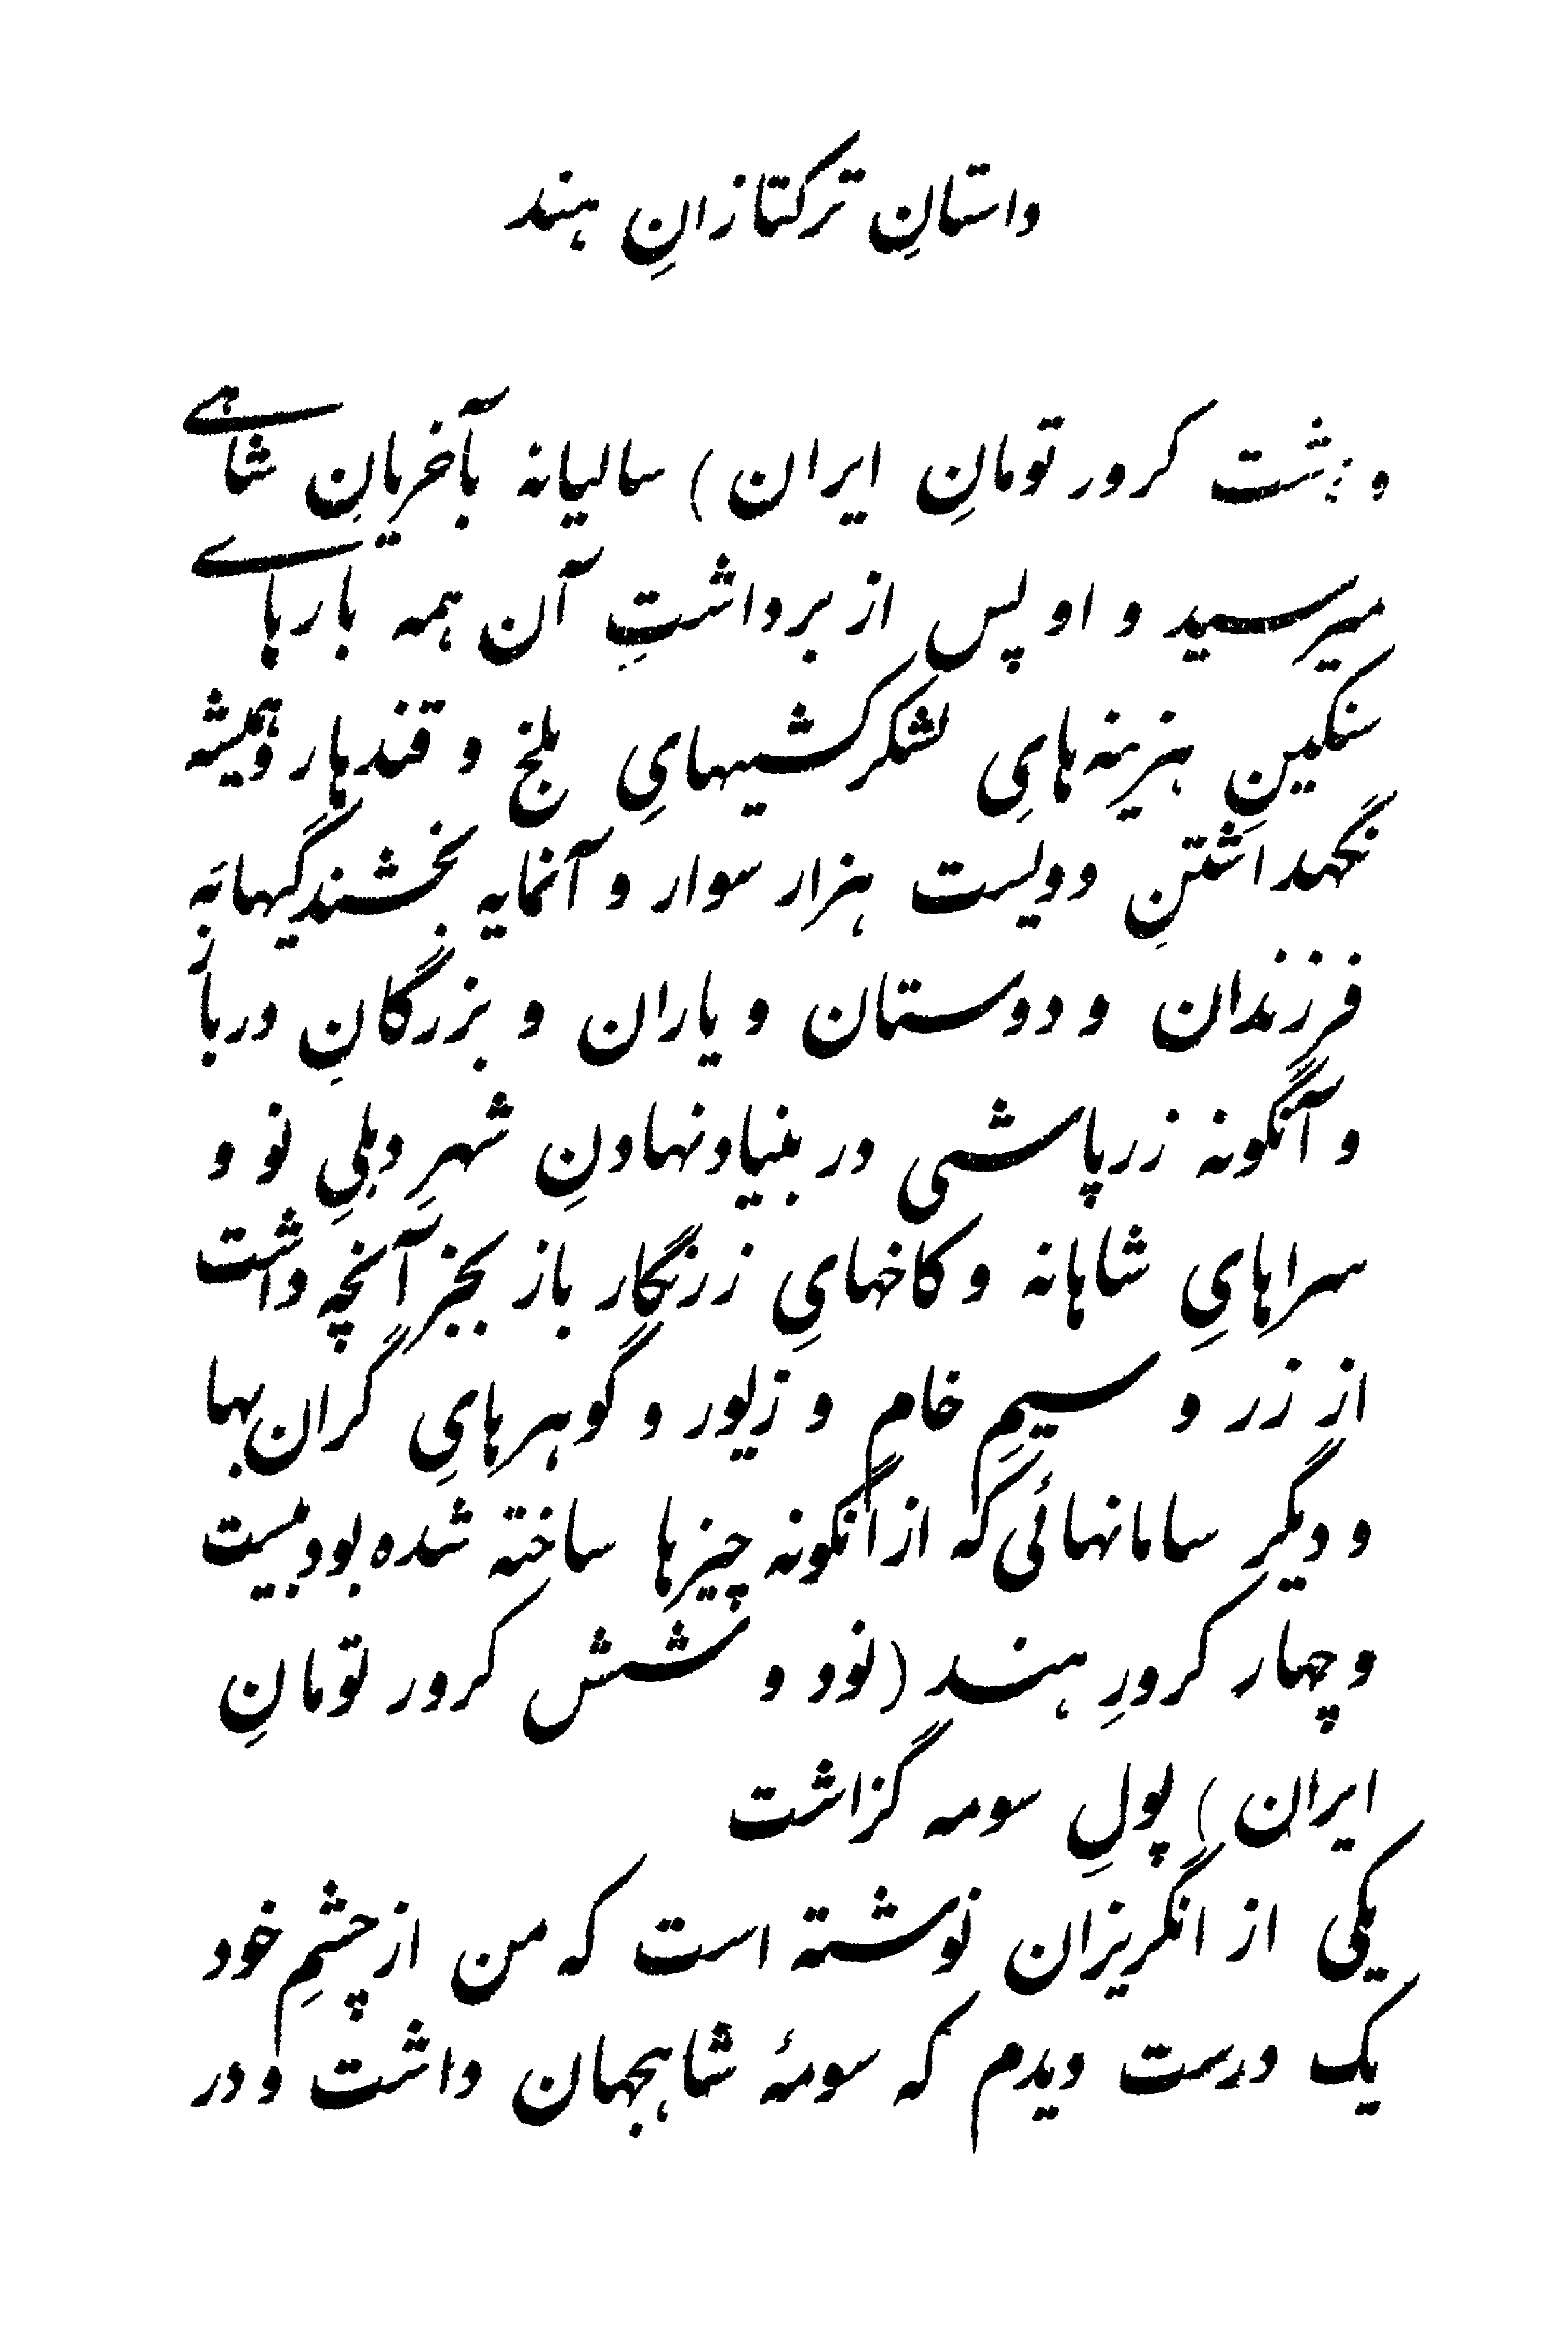 داستانِ ترکتازانِ هند
و هشت کرور تومانِ ایران) سالیانه بآخریانِ شاهے
میرسید و او پس از برداشتِ آن همه بارهاے
سنگینِ هزینه‌هایِ لشکرکشیهایِ بلخ و قندهار و همیشه
نگهداشتنِ دویست هزار سوار و آنمایه بخشندگیها به
فرزندان و دوستان و یاران و بزرگانِ دربار
و آنگونه زرپاشی در بنیاد نهادنِ شهرِ دهلیِ نو و
سراهایِ شاهانه و کاخهایِ زرنگار باز بجز آنچه داشت
از زر و سیمِ خام و زیور و گوهرهایِ گران بها
و دیگر سامانهائی که از آنگونه چیزها ساخته شده بود بیست
و چهار کرورِ هند (نود و شش کرور تومانِ
ایران) پولِ سومه گزاشت
یکی از انگریزان نوشته است که من از چشمِ خود
یک درست دیدم که سومهٔ شاهجهان داشت و در